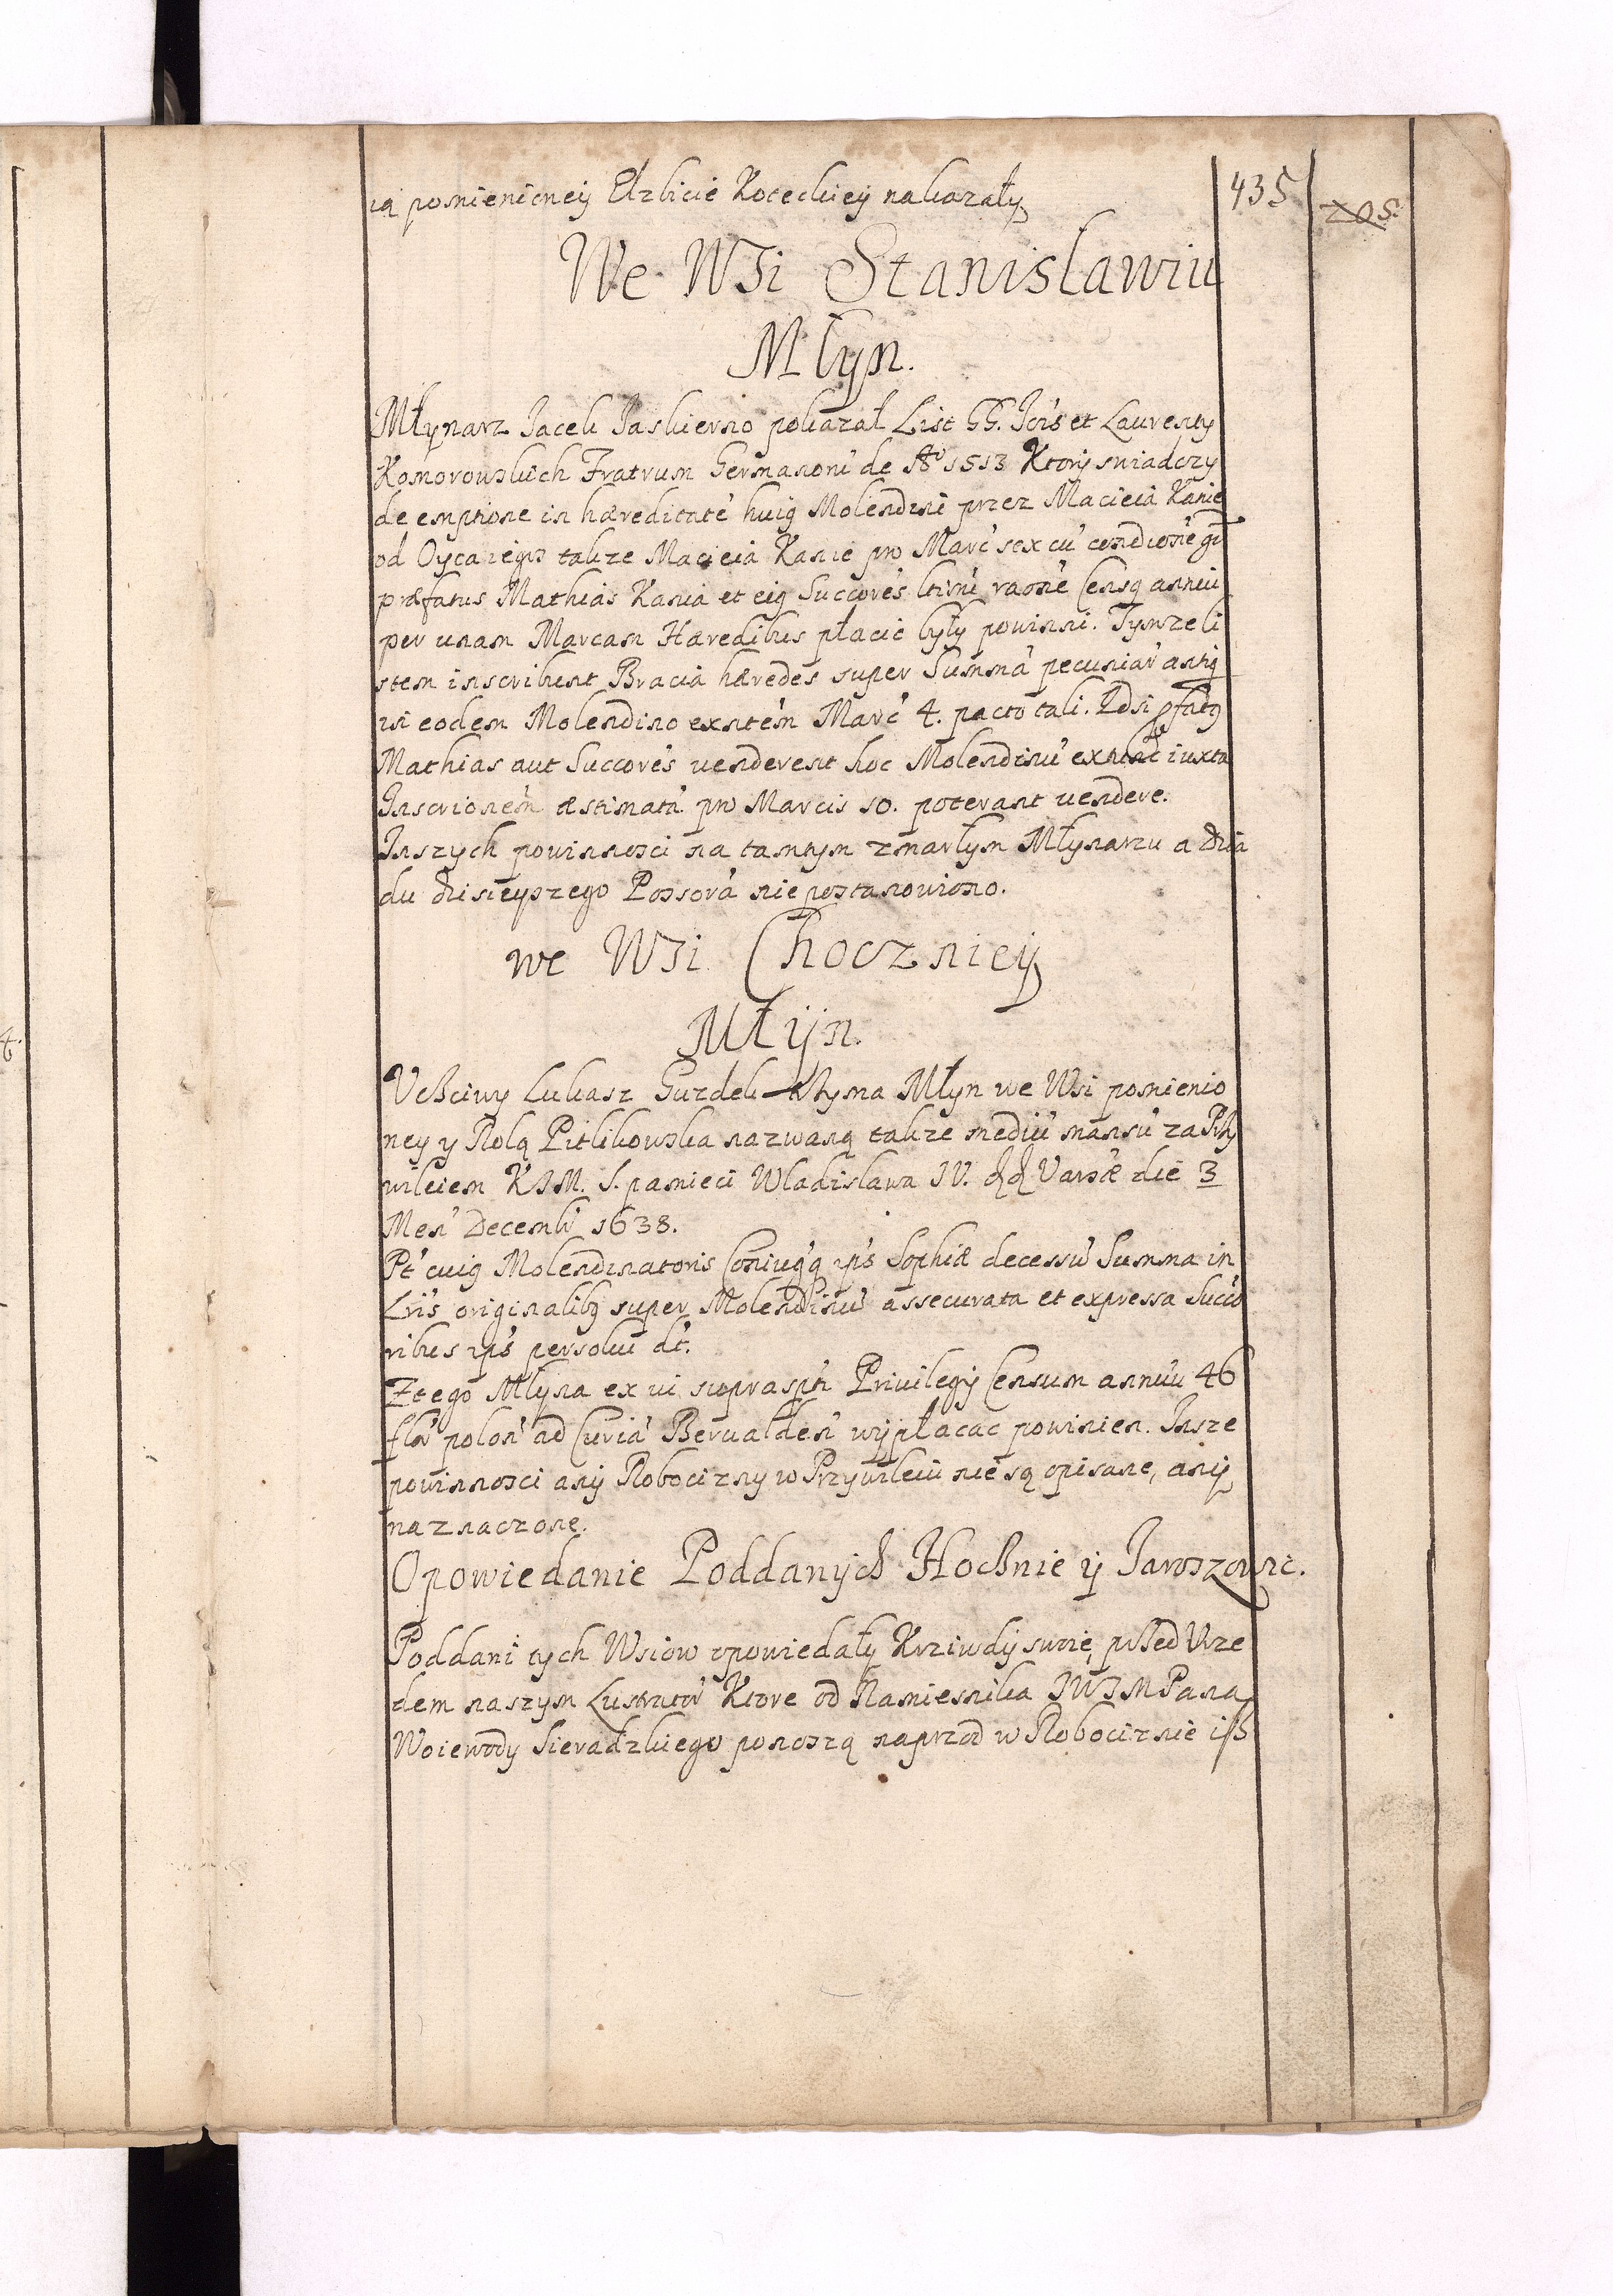 ią pomienicney Elzbicie Koteckiey nakazały
435
205.
We WSi Stanisławiu
Młyn.
Młynarz Jacek Jaskierno pokazał List GG. Jois et Laurenty
Komorowskich Fratrum Germanoru de Ao 1513 Ktory swiadczy
de emptione in hæreditate huig Molendini przez Macieia Kanie
od Oyca iego takze Macieia Kanie pro Marc sex cu condione
præfatus Mathias Kania et eig Succores racione Censq annui
per unam Marcam Hæredibus płacic były powinni. Tymze li
stem inscribunt Bracia hæredes super Summa pecuniar antiq
in eodem Molendino exntem Marc 4. pacto tali. Qdsi pfatg
Mathias aut Succores venderent hoc Molendinu extunc iuxta
Inscrionem æstimata pro Marcis 10. poterant vendere.
Inszych powinnosci na tamtym zmarłym Młynarzu a dzia
du dzisieyszego Possora nie postanowiono.
we WSi Choczniey
Młyn.
Ucżciwy Lukasz Gurdek trzyma Młyn we Wsi pomienio
ney y Rolą Pitlikowska nazwaną takze mediu mansu za Prży
wileiem KJM. S. pamieci Wladislawa IV. dd Varsæ die 3
Men Decemb 1638.
Pt cuig Molendinatoris Coniugq ips Sophiæ decessu Summa in
Lris originalibg super Molendinu assecurata et expressa Succo
ribus ips persolui dt.
Z tego Młyna ex vi suprasph Privilegij Censum annuu 46
flor polon ad Curia Beruałden wypłacac powinien. Insze
powinnosci any Robocizny w Przywileiu nie są opisane, any
naznaczone.
Opowiedanie Poddanych Hocżnie y Jaroszowic.
Poddani tych Wsiow opowiedały Krziwdy swoie, przed Urze
dem naszym Lustrator Ktore od Namiesnika JWJM Pana
Woiewody Sieradzkiego ponoszą naprzod w Robociznie isz